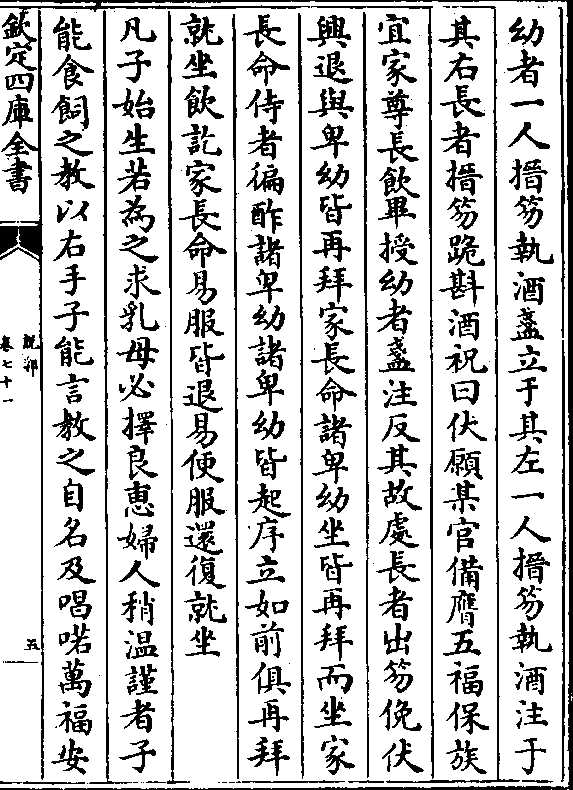 幼者一人搢笏執酒盞立于其左一人搢笏執酒注于
其右長者搢笏跪斟酒祝曰伏願某官備膺五福保族
宜家尊長飲畢授幼者盞注反其故處長者出笏俛伏
興退與卑幼皆再拜家長命諸卑幼坐皆再拜而坐家
長命侍者徧酢諸卑幼諸卑幼皆起序立如前俱再拜
就坐飲訖家長命易服皆退易便服還復就坐
凡子始生若為之求乳母必擇良恵婦人稍温謹者子
能食飼之教以右手子能言教之自名及唱喏萬福安
欽定四庫全書
說郛
卷七十一
五